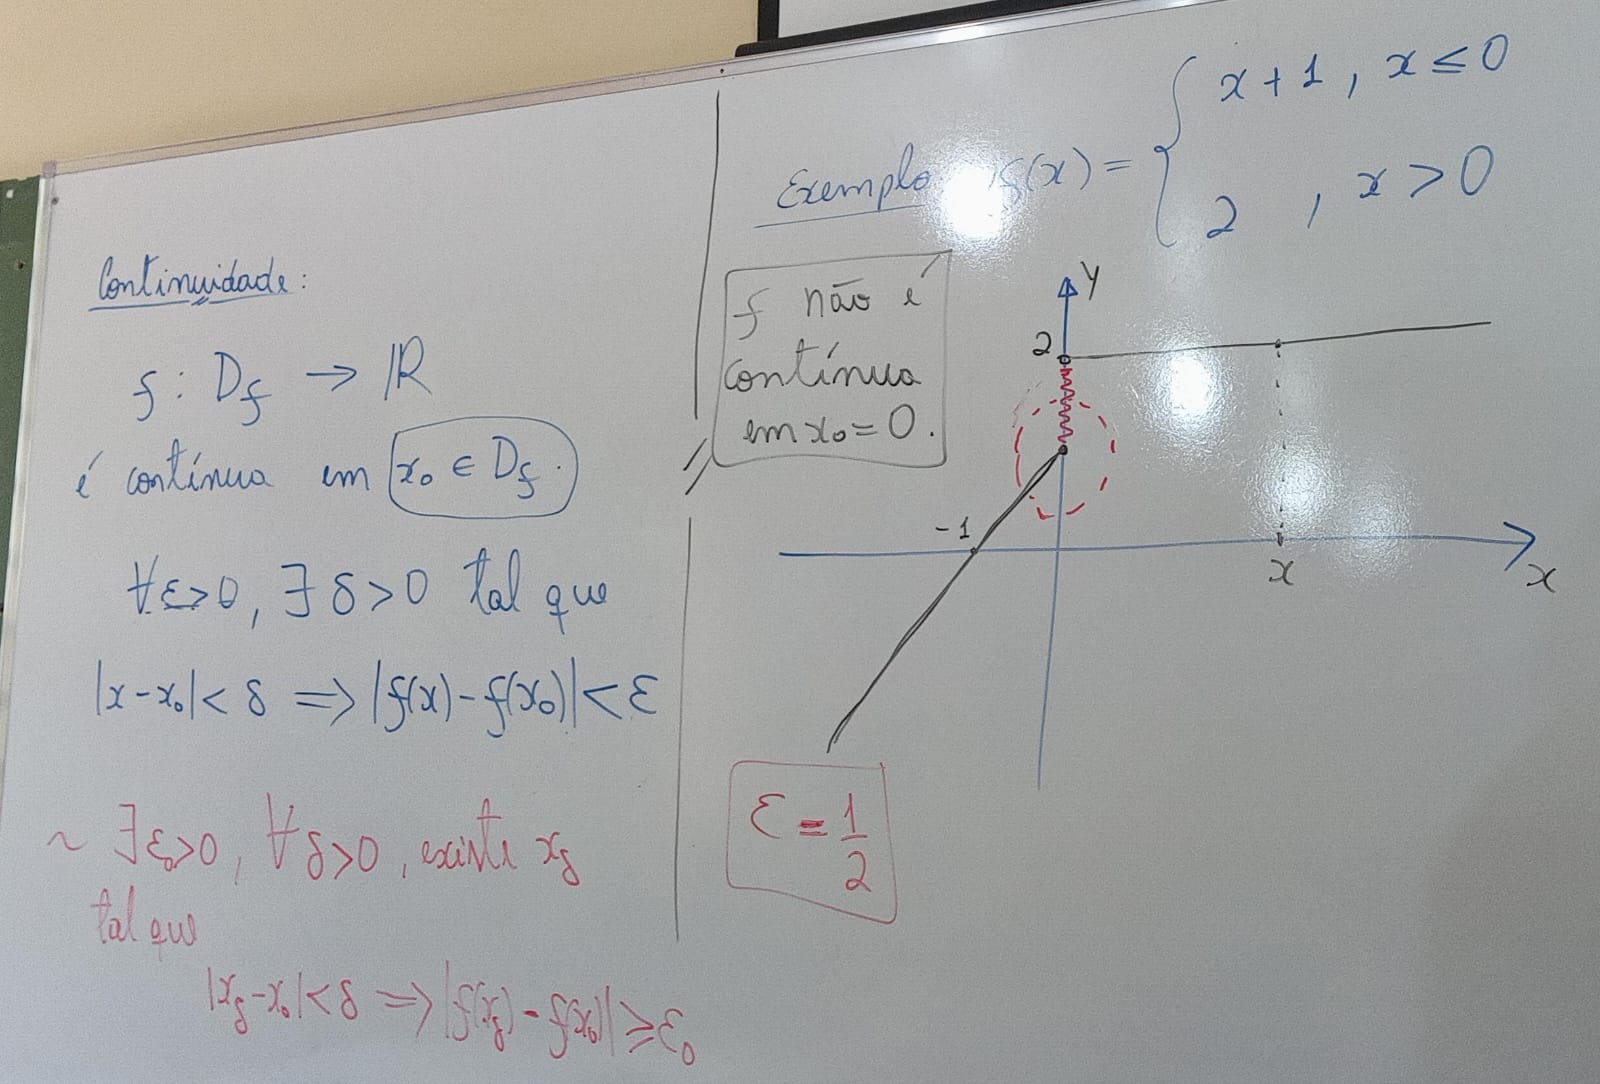 Continuidade:
f : Df → ℝ
é contínua em x₀ ∈ Df.
∀ε>0, ∃ δ>0 tal que
|x-x₀|<δ ⟹ |f(x)-f(x₀)|<ε
~ ∃ε₀>0, ∀δ>0, existe xδ
tal que
|xδ-x₀|<δ ⟹ |f(xδ)-f(x₀)|≥ε₀
Exemplo f(x) = { x+1, x≤0
2, x>0
f não é
contínua
em x₀=0.
y
2
-1
x
x
ε = 1/2